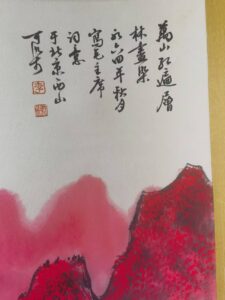 萬山红遍層
林盡染
一九六四年秋月
寫毛主席
詞意
于北京西山
可染